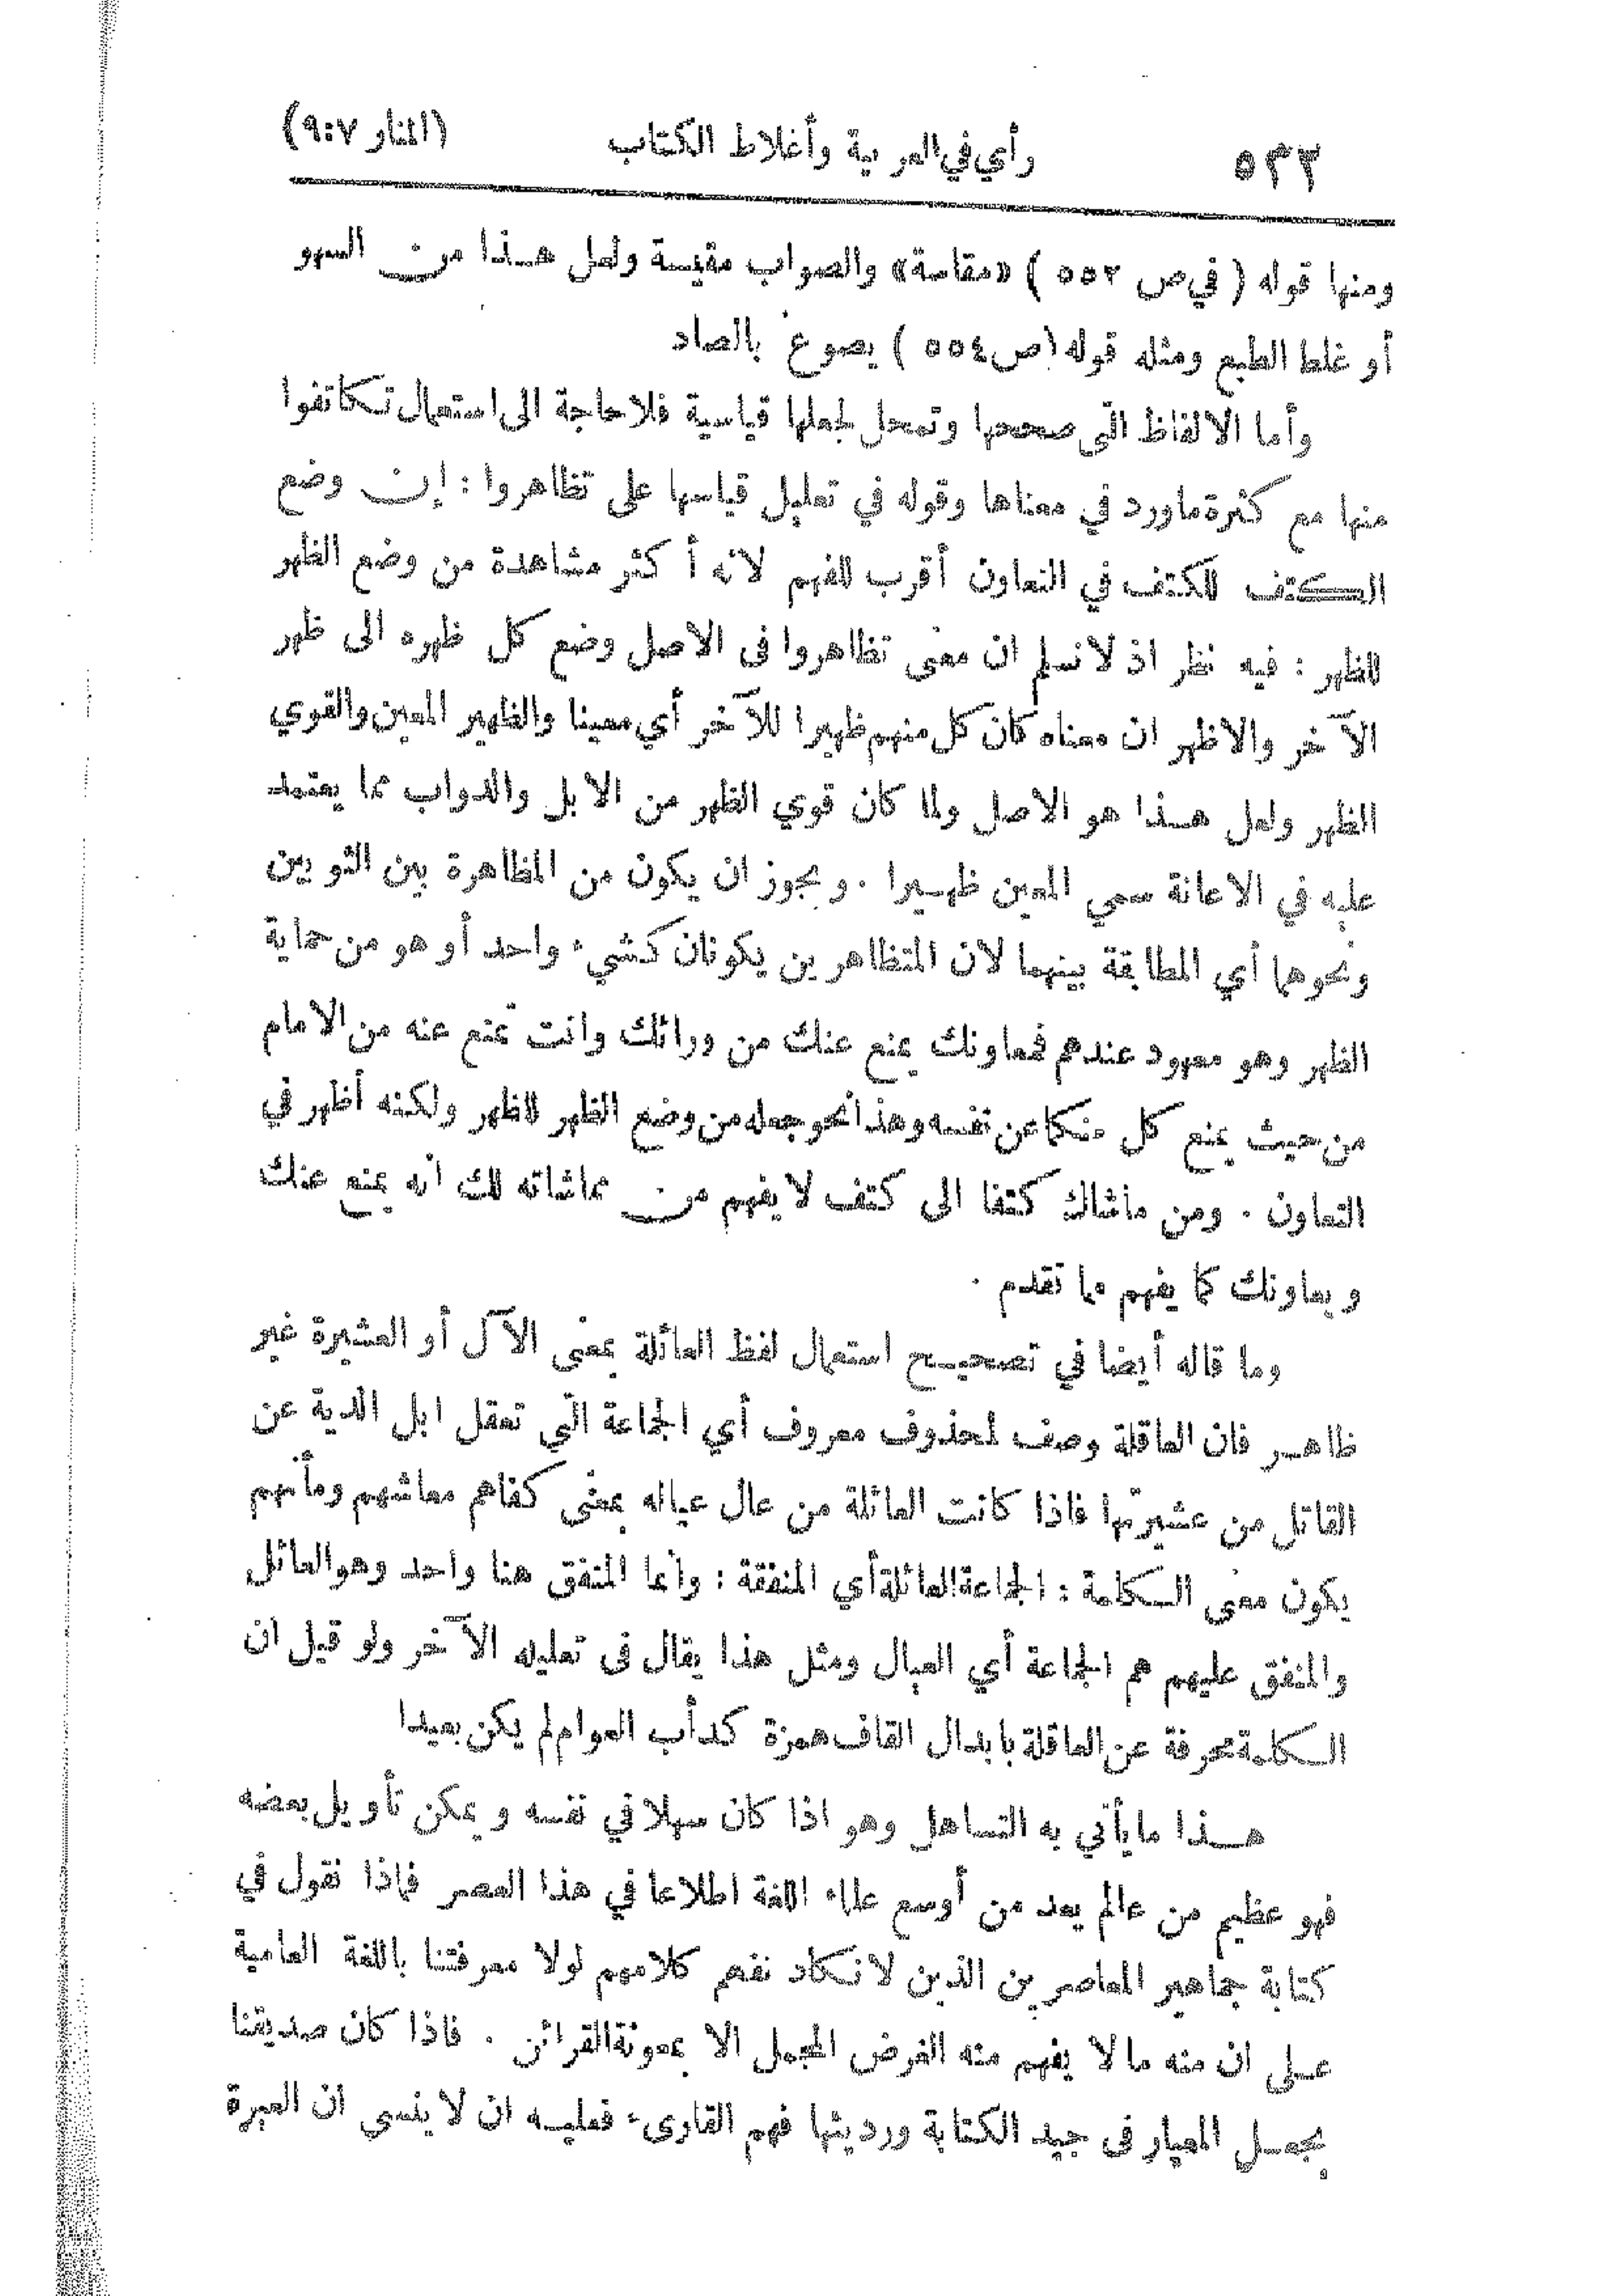 ٥٣٢ رأي في العربية وأغلاط الكتاب (المنار ٩:٧)
ومنها قوله ( في ص ٥٥٢ ) «مقاسة» والصواب مقيسة ولعل هـذا من السهو
أو غلط الطبع ومثله قوله (ص ٥٥٤ ) يصوغ بالصاد
وأما الالفاظ التي صححها وتمحل لجعلها قياسية فلا حاجة الى استعمال تكاتفوا
منها مع كثرة ما ورد في معناها وقوله في تعليل قياسها على تظاهروا : إن وضع
الكتف للكتف في التعاون أقرب للفهم لانه أكثر مشاهدة من وضع الظهر
للظهر : فيه نظر اذ لا نسلم ان معنى تظاهروا في الاصل وضع كل ظهره الى ظهر
الآخر والاظهر ان معناه كان كل منهم ظهيرا للآخر أي معينا والظهير المعين والقوي
الظهر ولعل هـذا هو الاصل ولما كان قوي الظهر من الابل والدواب مما يعتمد
عليه في الاعانة سمي المعين ظهـيرا . ويجوز ان يكون من المظاهرة بين الثوبين
ونحوهما أي المطابقة بينهما لان المتظاهرين يكونان كشيء واحد أو هو من حماية
الظهر وهو معهود عندهم فمعاونك يمنع عنك من ورائك وانت تمنع عنه من الامام
من حيث يمنع كل منكما عن نفسه وهذا نحو جعله من وضع الظهر للظهر ولكنه أظهر في
التعاون . ومن ماشاك كتفا الى كتف لا يفهم من مماشاته لك انه يمنع عنك
ويعاونك كما يفهم مما تقدم .
وما قاله أيضا في تصحيـح استعمال لفظ العائلة بمعنى الآل أو العشيرة غير
ظاهـر فان العاقلة وصف لمحذوف معروف أي الجماعة التي تعقل ابل الدية عن
القاتل من عشيرتها فاذا كانت العائلة من عال عياله بمعنى كفاهم معاشهم ومأنهم
يكون معنى الكلمة : الجماعة العائلة أي المنفقة : وانما المنفق هنا واحد وهو العائل
والمنفق عليهم هم الجماعة أي العيال ومثل هذا يقال في تعليله الآخر ولو قيل ان
الكلمة محرفة عن العاقلة بابدال القاف همزة كدأب العوام لم يكن بعيدا
هـذا ما يأتي به التساهل وهو اذا كان سهلا في نفسه ويمكن تأويل بعضه
فهو عظيم من عالم يعد من أوسع علماء اللغة اطلاعا في هذا العصر فماذا نقول في
كتابة جماهير المعاصرين الذين لا نكاد نفهم كلامهم لولا معرفتنا باللغة العامية
عـلى ان منه ما لا يفهم منه الغرض المجمل الا بمعونة القرائن . فاذا كان صديقنا
يجعـل المعيار في جيد الكتابة ورديئها فهم القارىء فعليـه ان لا ينسى ان العبرة